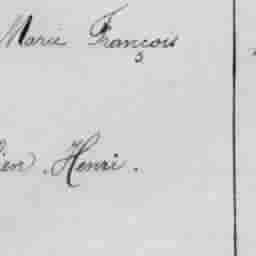 Marie François
ien, Henri.